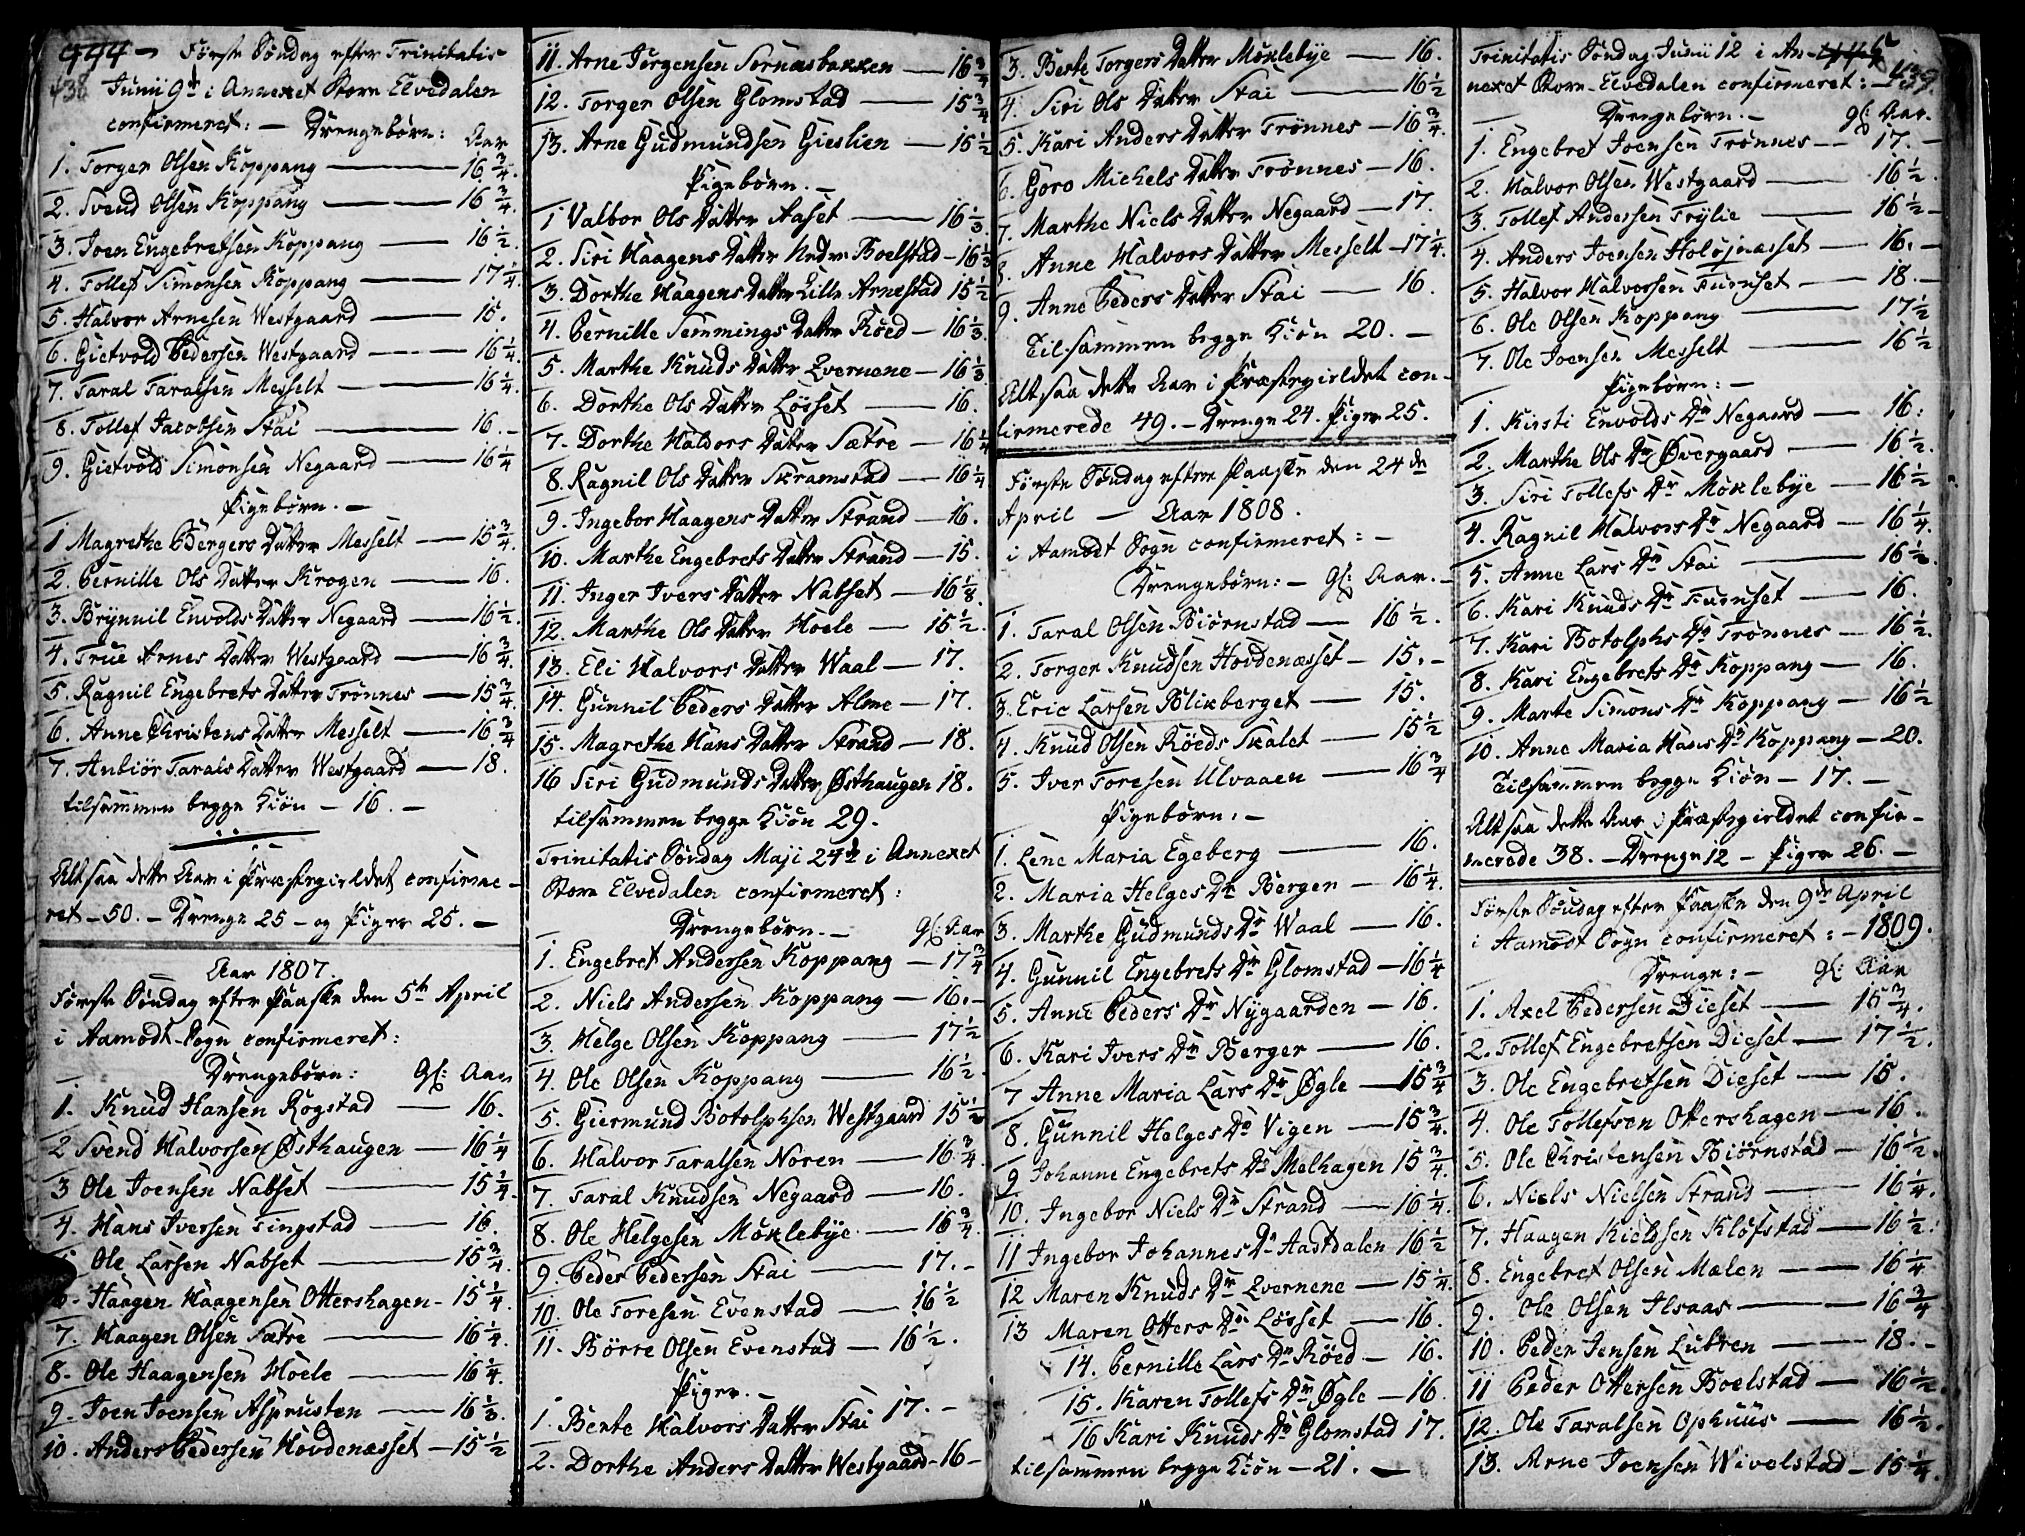 444 - Første Søndag efter Trinitatis
438 Junii 9de i Annexet Store Elvedalen
confirmeret: - Drengebørn: Aar
1. Torger Olsen Koppang - 16 3/4.
2. Svend Olsen Koppang - 16 3/4.
3. Joen Engebretsen Koppang - 16 1/2.
4. Tollef Simonsen Koppang - 17 1/4.
5. Halvor Arnesen Westgaard - 15.
6. Gietvold Pedersen Westgaard - 16 1/4.
7. Taral Taralsen Messelt - 16 1/4.
8. Tollef Jacobsen Stai - 16. -
9. Gietvold Simonsen Negaard - 16 1/4
Pigebørn. -
1 Magrethe Bergers Datter Messelt - 15 3/4.
2. Pernille Ols Datter Krogen - 16.
3. Brynnil Envolds Datter Negaard - 16 1/2.
4. True Arnes Datter Westgaard - 16 3/4.
5. Ragnil Engebrets Datter Trønnes - 15 3/4.
6. Anne Christens Datter Messelt - 16 3/4
7. Anbiør Tarals Datter Westgaard - 18.
tilsammen begge Kiøn - 16. -
Altsaa dette Aar i Præstegieldet confirme-
ret - 50. - Drenge 25 - og Piger 25. -
Aar 1807.
Første Søndag efter Paaske den 5te April
i Aamodt Sogn confirmeret:
Drengebørn: gl: Aar
1. Knud Hansen Rogstad - 16.
2 Svend Halvorsen Østhaugen - 16 1/4
3 Ole Joensen Nabset - 15 3/4.
4. Hans Iversen Tingstad - 16.
Ole Larsen Nabset - 15 3/4.
6. Haagen Haagensen Ottershagen - 15 1/4.
7. Haagen Olsen Sætre - 16 1/4.
8. Ole Haagensen Hoele - 16 1/4.
9. Joen Joensen Asprusten - 16 1/3.
10. Anders Pedersen Hovdenæsset - 15 1/2
11. Arne Jørgensen Sornæsbakken - 16 3/4
12. Torger Olsen Glomstad - 15 3/4
13. Arne Gudmundsen Gieslien - 15 1/2
Pigebørn. -
1 Valbor Ols Datter Aaset - 16 1/3
2. Siri Haagens Datter Nedre Boelstad - 16 1/3
3. Dorthe Haagens Datter Lille Arnestad 15 1/2
4. Pernille Semmings Datter Røed - 16 1/3.
5. Marthe Knuds Datter Evernene - 16 1/3
6. Dorthe Ols Datter Løsset - 16.
7. Dorthe Haldors Datter Sætre - 16 1/4
8. Ragnil Ols Datter Skramstad - 16 1/4
9. Ingebor Haagens Datter Strand - 16.
10. Marthe Engebrets Datter Strand - 15.
11. Inger Ivers Datter Nabset - 16 1/8.
12. Marthe Ols Datter Hoele - 15 1/2.
13. Eli Halvors Datter Waal - 17.
14. Gunnil Peders Datter Alme - 17.
15. Magrethe Hans Datter Strand - 18.
16 Siri Gudmunds Datter Østhaugen 18.
tilsammen begge Kiøn 29.
Trinitatis Søndag Maji 24de i Annexet
Store Elvedalen confirmeret:
Drengebørn. - gl: Aar
1. Engebret Andersen Koppang - 17 3/4
2. Niels Andersen Koppang - 16. -
3. Helge Olsen Koppang - 17 1/2
4. Ole Olsen Koppang - 16 1/2.
5. Giermund Botolphsen Westgaard 15 1/2
6. Halvor Taralsen Noren - 16 3/4.
7. Taral Knudsen Negaard - 16.
8. Ole Helgesen Møklebye - 16 3/4.
9. Peder Pedersen Stai - 17. -
10. Ole Toresen Evenstad - 16 1/2
11. Børre Olsen Evenstad - 16 1/2.
Piger. -
1. Bente Halvors Datter Stai 17. -
2. Dorthe Anders Datter Westgaard - 16 -
3. Berte Torgers Datter Møklebye - 16.
4. Siri Ols Datter Stai - 16 1/2
5. Kari Anders Datter Trønnes - 16 3/4.
6. Goro Michels Datter Trønnes - 16.
7. Marthe Niels Datter Negaard - 17.
8. Anne Halvors Datter Messelt - 17 1/4.
9. Anne Peders Datter Stai - 16.
Tilsammen begge Kiøn 20. -
Altsaa dette Aar i Præstegieldet con-
firmerede 49. - Drenge 24. Piger 25.
Første Søndag efter Paaske den 24de
April - Aar 1808.
i Aamodt Sogn confirmeret: -
Drengebørn: - gl: Aar. -
1. Taral Olsen Biørnstad - 16 1/2.
2. Torger Knudsen Hovdenæsset - 15. -
3. Eric Larsen Blikberget - 15.
4. Knud Olsen Røeds Skalet - 15 1/2
5. Iver Toresen Ulvaaen - 16 3/4
Pigebørn: -
1. Lene Maria Egeberg - 16.
2. Maria Helges Dr Bergen - 16 1/4.
3. Marthe Gudmunds Dr Waal - 16.
4. Gunnil Engebrets Dr Glomstad - 16 1/4
5. Anne Peders Dr Nygaarden - 16.
6. Kari Ivers Dr Berger - 16.
7 Anne Maria Lars Dr Øgle - 15 3/4
8. Gunnil Helges Dr Vigen - 15 3/4.
9 Johanne Engebrets Dr Melhagen 15 3/4.
10. Ingebor Niels Dr Strand - 16 1/4.
11 Ingebor Johannes Dr Aastdalen 16 1/2
12 Maren Knuds Dr Evernene - 15 1/4.
13 Maren Otters Dr Løsset - 16.
14. Pernille Lars Dr Røed - 16.
15. Karen Tollefs Dr Øgle - 16.
16 Kari Knuds Dr Glomstad 17.
tilsammen begge Kiøn - 21. -
Trinitatis Søndag Junii 12 i An- 445
439.
nexet Store-Elvedalen confirmeret: -
Drengebørn. - gl: Aar.
1. Engebret Joensen Trønnes - 17. -
2. Halvor Olsen Westgaard - 16 1/2.
3. Tollef Andersen Trylie - 16 1/2 -
4. Anders Joensen Holøjnæsset - 16. -
5. Halvor Halvorsen Furuset - 18. -
6. Ole Olsen Koppang - 17 1/2
7. Ole Joensen Messelt - 16 1/2
Pigebørn: -
1. Kirsti Envolds Dr Negaard - 16:
2. Marthe Ols Dr Øvergaard - 16 1/2.
3. Siri Tollefs Dr Møklebye - 16 1/2
4. Ragnil Halvors Dr Negaard - 16 1/4.
5. Anne Lars Dr Stai - 16 1/2.
6. Kari Knuds Dr Furuset - 16.
7. Kari Botolphs Dr Trønnes - 16 1/2.
8. Kari Engebrets Dr Koppang - 16.
9. Marte Simons Dr Koppang - 16 1/2
10. Anne Maria Hans Dr Koppang - 20.
Tilsammen begge Kiøn - 17. -
Altsaa dette Aar i Præstegieldet confir-
merede 38. - Drenge 12 - Piger 26. -
Første Søndag efter Paaske den 9de April
i Aamodt Sogn confirmeret: - 1809.
Drenge: - gl: Aar
1. Axel Pedersen Dieset - 15 3/4.
2. Tollef Engebretsen Dieset - 17 1/2.
3. Ole Engebretsen Dieset - 15.
4. Ole Tollefsen Ottershagen - 16.
5. Ole Christensen Biørnstad - 16 1/2.
6. Niels Nielsen Strand - 16 1/4.
7. Haagen Kieldsen Kløfstad - 16 1/2.
8. Engebret Olsen Mælen - 16 1/4
9. Ole Olsen Ilsaas - 16 3/4
10. Peder Jensen Lubren - 18. -
11 Peder Ottersen Boelstad - 16 1/2
12. Ole Taralsen Ophuus - 16 1/2.
13. Arne Joensen Wivelstad - 15 1/4.